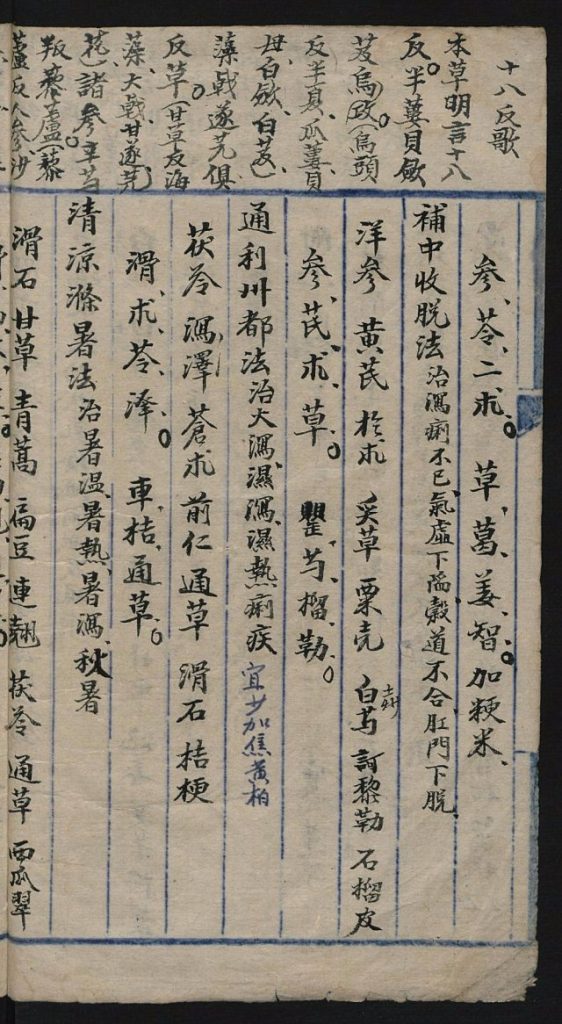 十八反歌
本草明言十八
反。半蔞貝蘞
芨烏攻。(烏頭
反半夏、瓜蔞、貝
母、白蘞、白芨)
藻戟遂芫俱
反草。(甘草反海
藻、大戟、甘遂、芫
花)諸參辛芍
叛藜蘆。(藜
蘆反人參、沙
參、苓、二朮。草、葛、姜、智。加粳米、
補中收脫法 治瀉痢不已、氣虛下陷、穀道不合、肛門下脫
洋參 黃芪 於朮 炙草 粟壳 白芍土炒 訶黎勒 石榴皮
參、芪、朮、草。罌、芍、榴、勒。
通利州都法 治大瀉、濕瀉、濕熱、痢疾 宜少加焦黃柏
茯苓 瀉澤 蒼朮 前仁 通草 滑石 桔梗
滑、朮、苓、澤。車、桔、通、草。
清涼滌暑法 治暑溫、暑熱、暑瀉、秋暑
滑石 甘草 青蒿 扁豆 連翹 茯苓 通草 西瓜翠